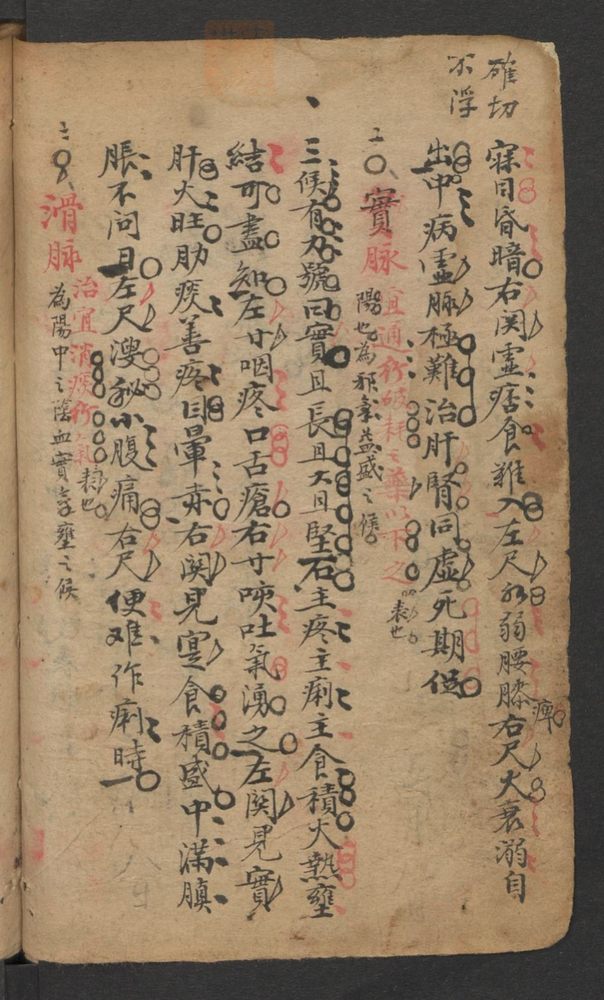 確切
不浮
寐目昏暗右関虛痞食難入左尺水弱腰膝痺右尺火衰溺自
出中病虛脈極難治肝腎同虛死期促
二〇實脉 宜通行破耗之藥以下之
陽也為邪氣盛之候 表也
三候有力號曰實且長且大且堅石主疼主痢主食積火熱壅
結可盡知左寸咽疼口舌瘡右寸咳吐氣湧之左関見實
肝火旺肋痰善疼目暈赤右関見寔食積盛中滿膜
脹不問日左尺溲秘小腹痛右尺便难作痢時
二〇滑脉 治宜消痰行氣
為陽中之陰血實氣壅之候 表也